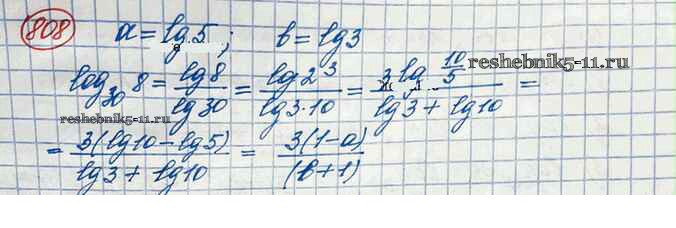 808 a = lg 5; b = lg 3
log₃₀ 8 = lg 8 / lg 30 = lg 2³ / lg 3·10 = 3 lg 10/5 / lg 3 + lg 10 =
reshebnik5-11.ru
reshebnik5-11.ru
= 3(lg 10 − lg 5) / lg 3 + lg 10 = 3(1−a) / (b+1)